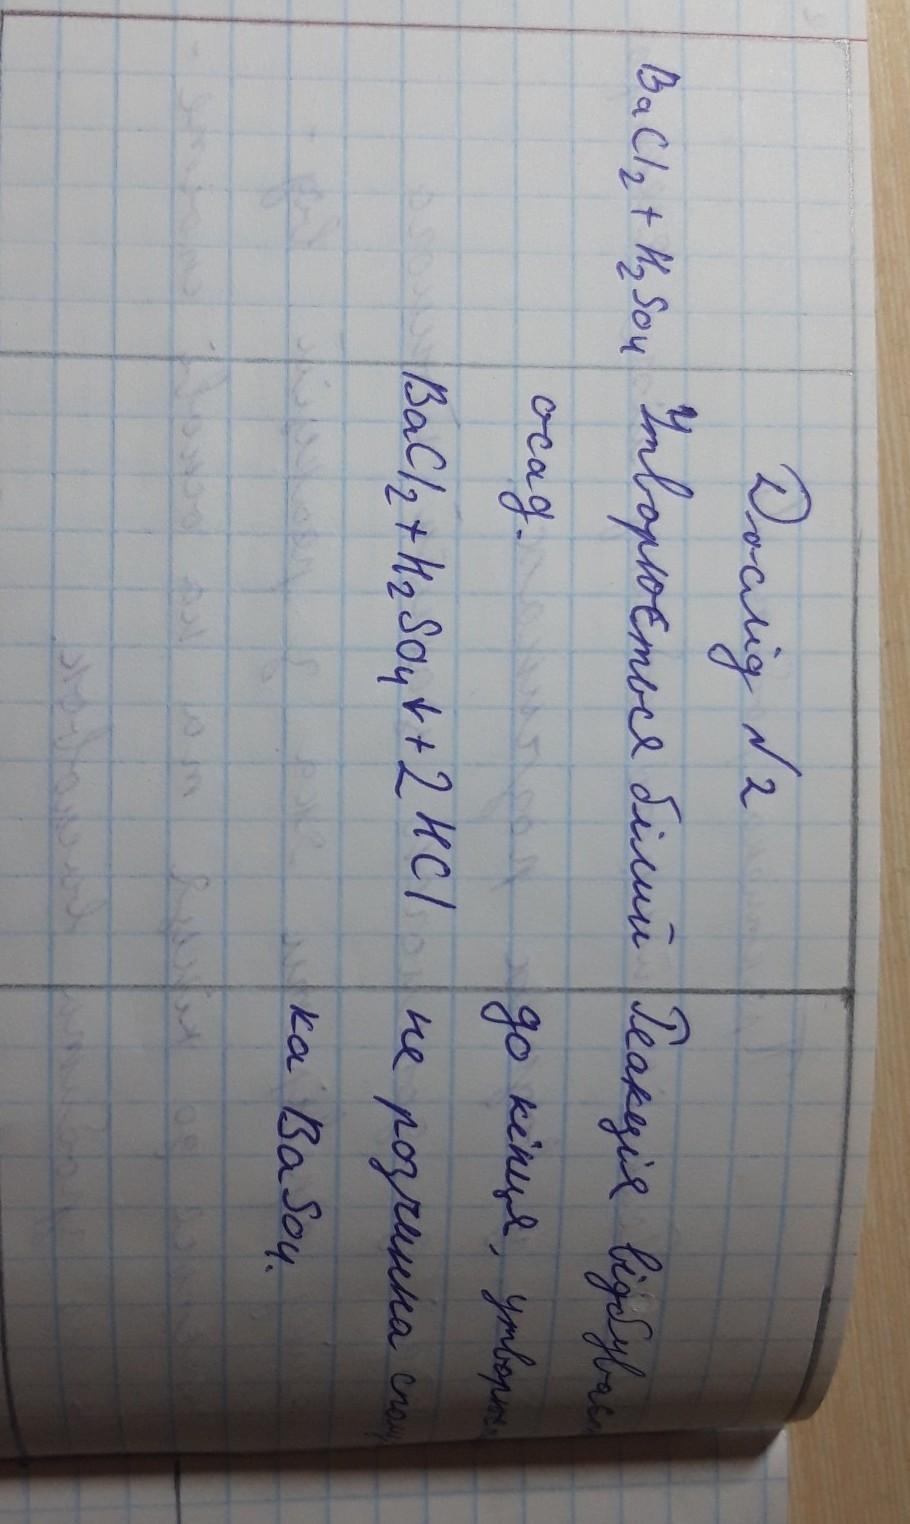 Дослід №2
BaCl2 + H2SO4
Утворюється білий
осад.
BaCl2 + H2SO4↓ + 2HCl
Реакція відбуває
до кінця, утворює
не розчинна спол
ка BaSO4.